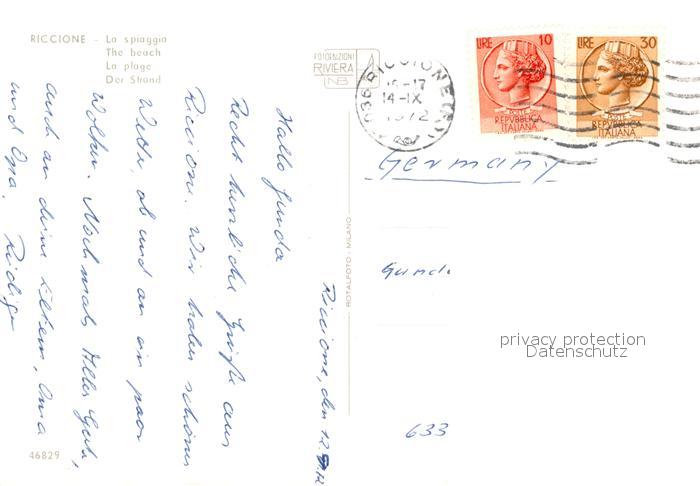 RICCIONE - La spiaggia
The beach
La plage
Der Strand
FOTOEDIZIONI
RIVIERA
NB
RICCIONE
16-17
14-IX
1972
LIRE 10
POSTE
REPVBBLICA
ITALIANA
LIRE 30
POSTE
REPVBBLICA
ITALIANA
Germany
Gunda
633
privacy protection
Datenschutz
ROTALFOTO - MILANO
Riccione, den 12.9.72
Hallo Gunda
Recht herzliche Grüße aus
Riccione. Wir haben schönes
Wetter, ab und an ein paar
Wolken. Nochmals Alles Gute,
auch an deine Eltern, Oma
und Opa. Rüdiger
46829